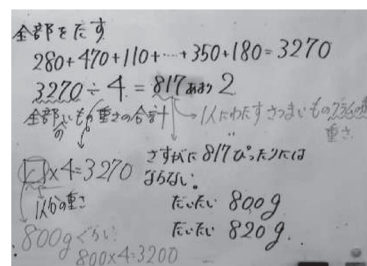 全部をたす
280+470+110+…+350+180=3270
3270÷4=817あまり2
全部のいもの重さの合計
1人にわたすさつまいもの
重さ
□×4=3270
1人分の重さ
さすがに817ぴったりには
ならない。
だいたい 800g
だいたい 820g.
800gぐらい
800×4=3200